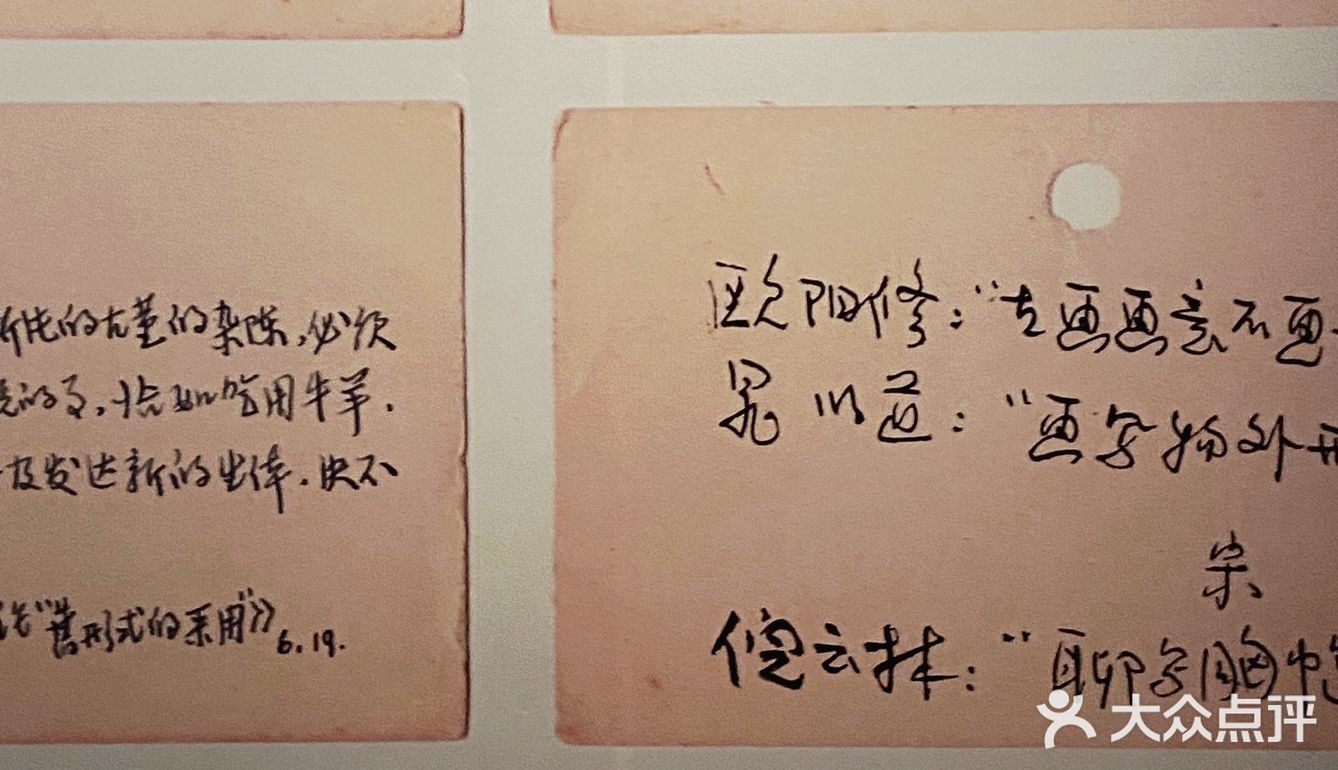 断片的古董的杂陈,必须
的事,恰如吃用牛羊.
及发达新的生体.决不
“旧形式的采用”》6.19.
欧阳修:“古画画意不画
晁以道:“画写物外
宋
倪云林:“聊写胸中
大众点评